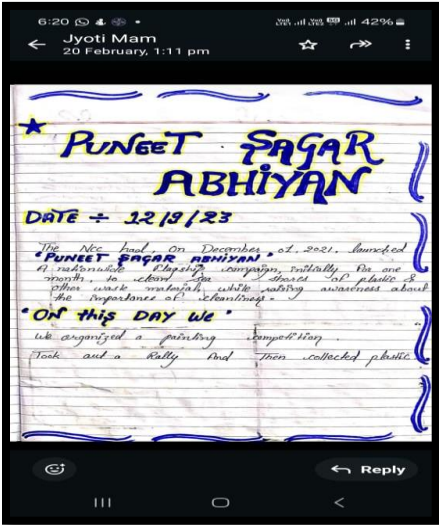 6:20
42%
Jyoti Mam
20 February, 1:11 pm
PUNEET SAGAR
ABHIYAN
DATE ÷ 12/9/23
The Ncc had, On December 01, 2021, launched
"PUNEET SAGAR ABHIYAN"
A nationwide flagship campaign, initially for one
month, to clean sea shores of plastic &
other waste material, while raising awareness about
the importance of cleanliness.
"ON this DAY We"
We organized a painting competition.
Took out a Rally And Then collected plastic
Reply